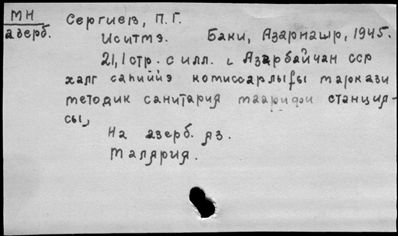 МН
азерб.
Сергиев, П. Г.
Иситмэ. Баки, Азарнашр, 1945.
21,1 стр. с илл. Азарбайчан ССР
халг саһиййэ комиссарлығы маркази
методик санитария маарифи станция-
сы,
На азерб. яз.
Малярия.